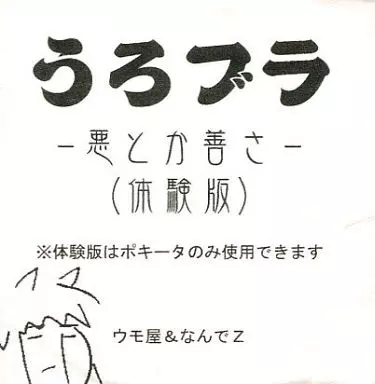 うろブラ
-悪とか善さ-
(体験版)
※体験版はポキータのみ使用できます
イマ
ウモ屋＆なんでZ